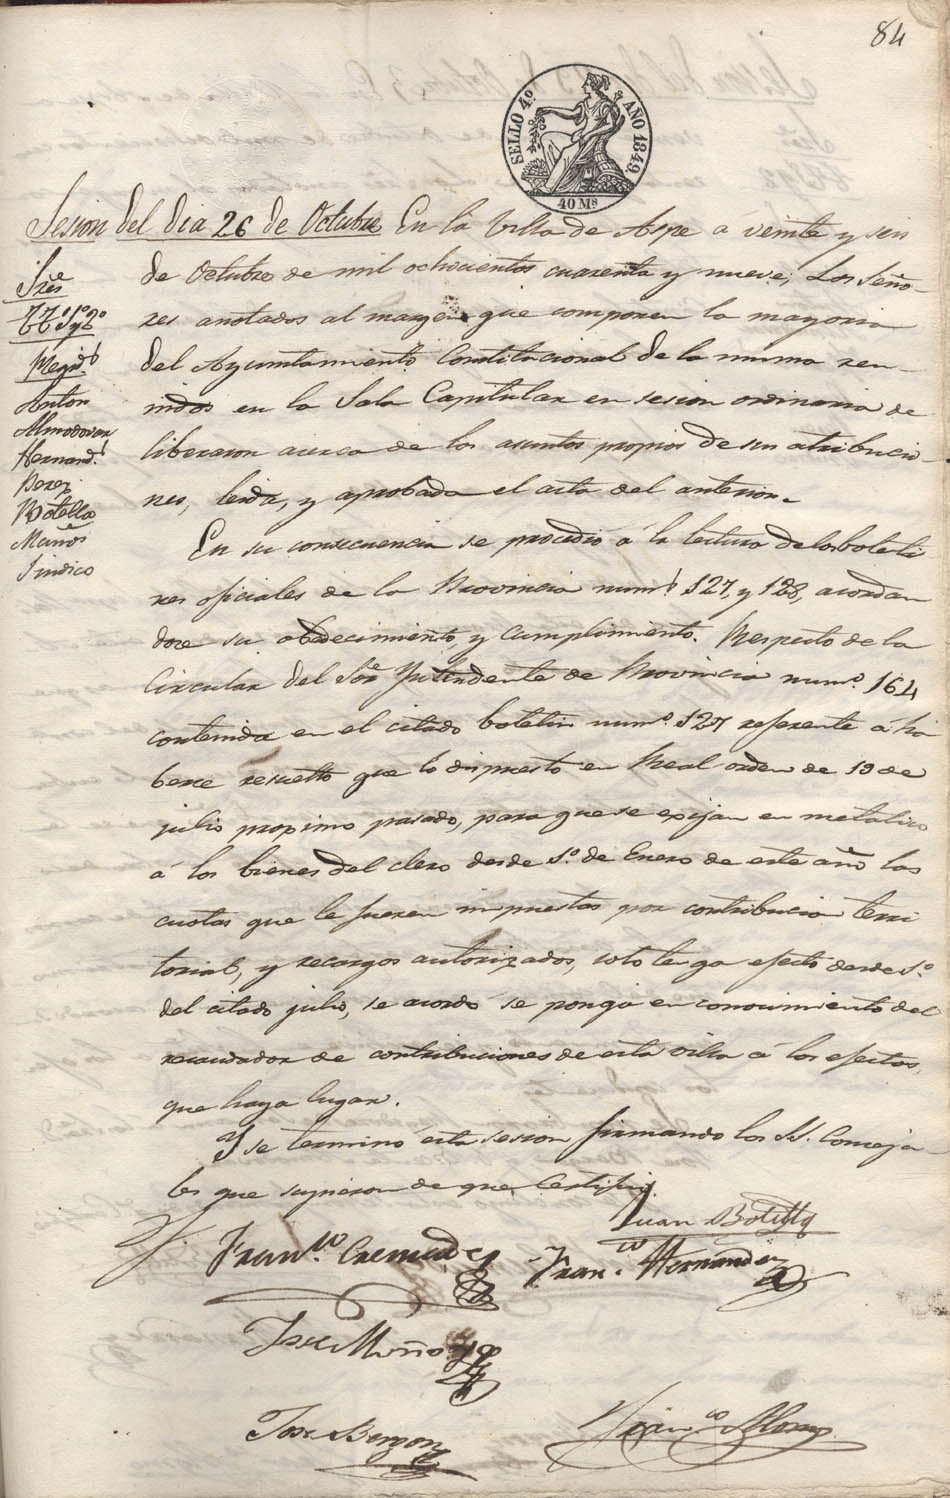 84
SELLO 4º AÑO 1849
40 Mˢ
Sesion del dia 26 de Octubre En la Villa de Aspe á veinte y seis
de Octubre de mil ochocientos cuarenta y nueve; Los Seño-
res anotados al margen que componen la mayoria
del Ayuntamiento Constitucional de la misma reu-
nidos en la Sala Capitular en sesion ordinaria de
liberaron acerca de los asuntos propios de sus atribucio-
nes, leida, y aprobada el acta del anterior.
Sres
TT 1º y 2º
Regid.s
Anton
Almodovar
Hernand.s
Perez
Botella
Muños
Sindico
En su consecuencia se procedió á la lectura de los boleti
nes oficiales de la Provincia num.s 127, y 128, acordan
dose su obedecimiento, y cumplimiento. Respecto de la
Circular del Sor Yntendente de Provincia num.º 164
contenida en el citado boletin num.º 127 referente á ha
berse resuelto que lo dispuesto en Real orden de 19 de
julio proximo pasado, para que se exijan en metalico
á los bienes del clero desde 1.º de Enero de este año las
cuotas que le fueren impuestas por contribucion terri
torial, y recargos autorizados, solo tenga efecto desde 1.º
del citado julio, se acordó se ponga en conocimiento del
recaudador de contribuciones de esta villa á los efectos
que haya lugar.
Y se terminó esta sesion firmando los SS. Conceja-
les que supieron de que Certifico
Juan Botella
Fran.co Cremades
Fran.co Hernandez
Jose Muñoz
Jose
Fran.co